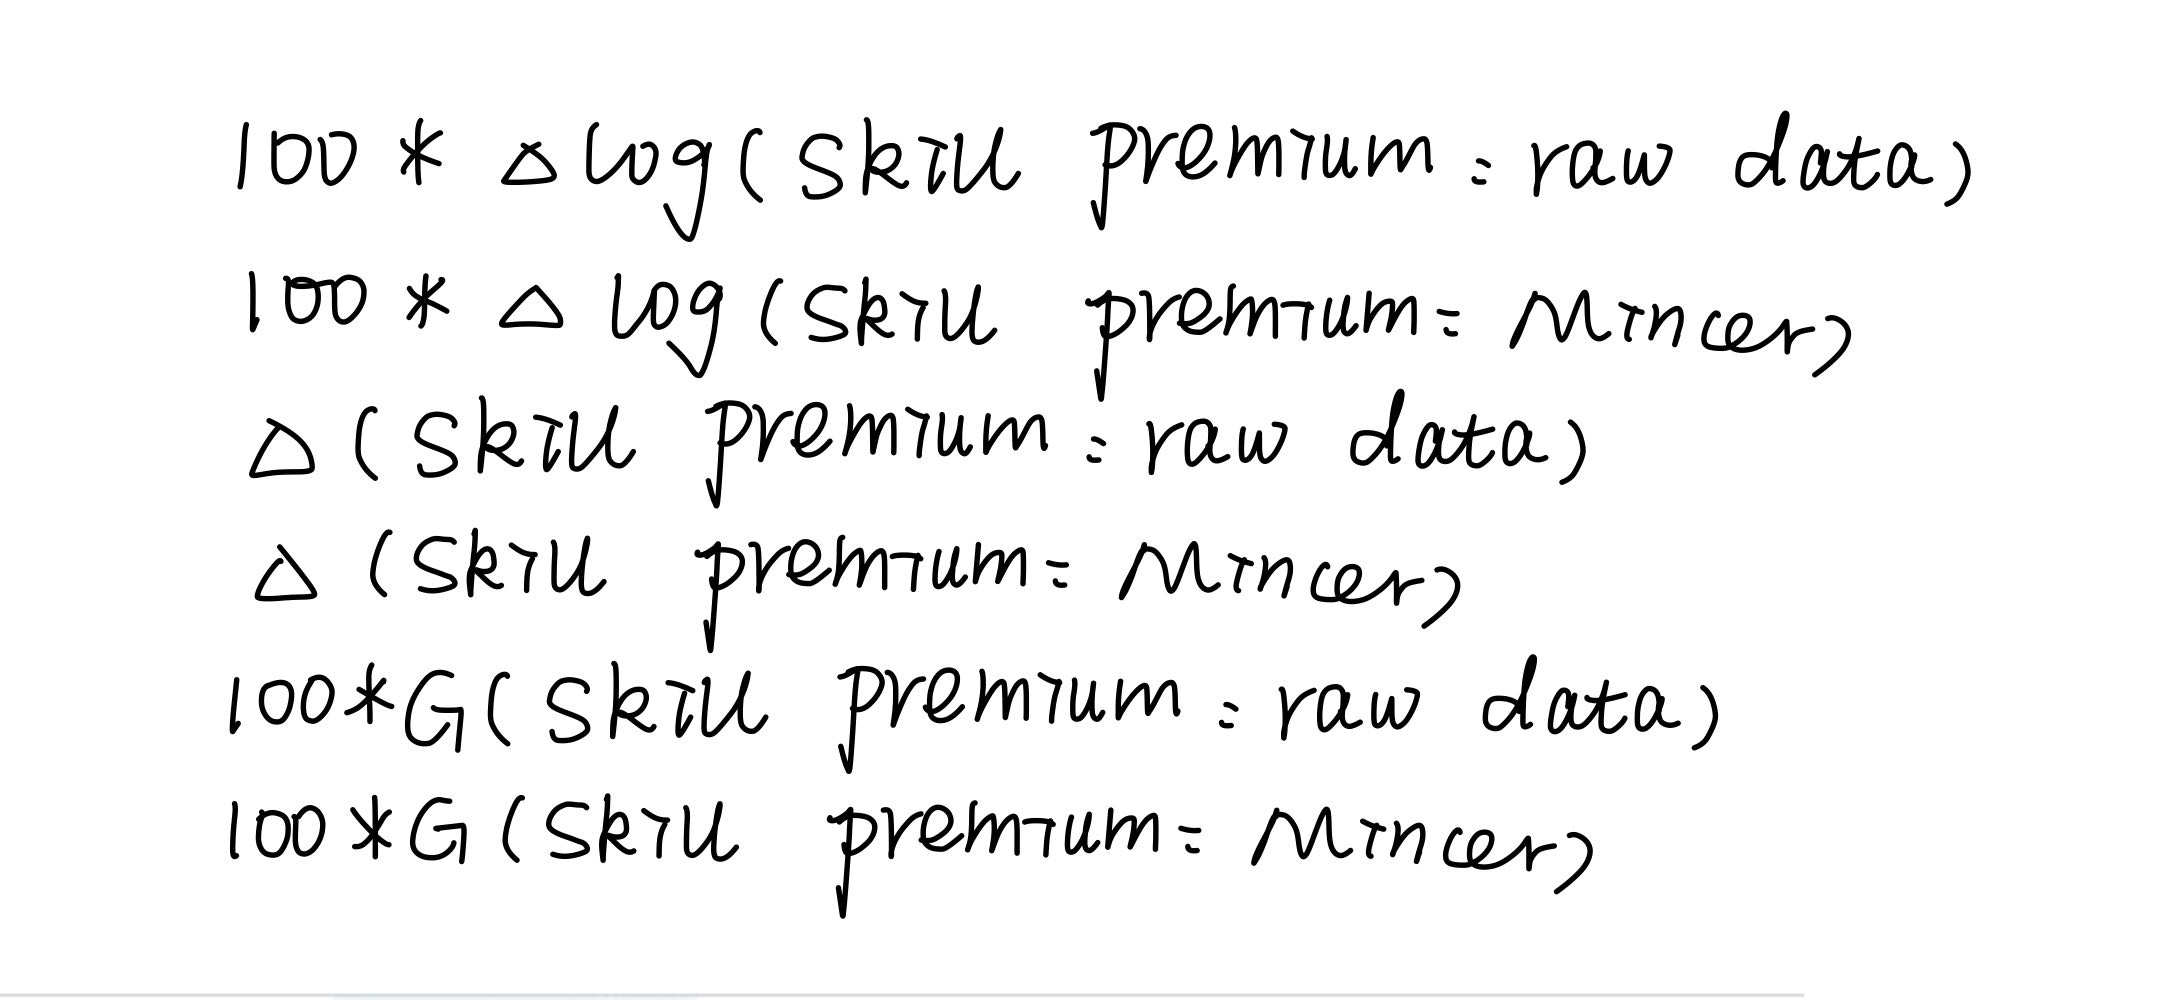 100 * Δ log (Skill premium : raw data)
100 * Δ log (Skill premium : Mincer)
Δ (Skill premium : raw data)
Δ (Skill premium : Mincer)
100 * G (Skill premium : raw data)
100 * G (Skill premium : Mincer)